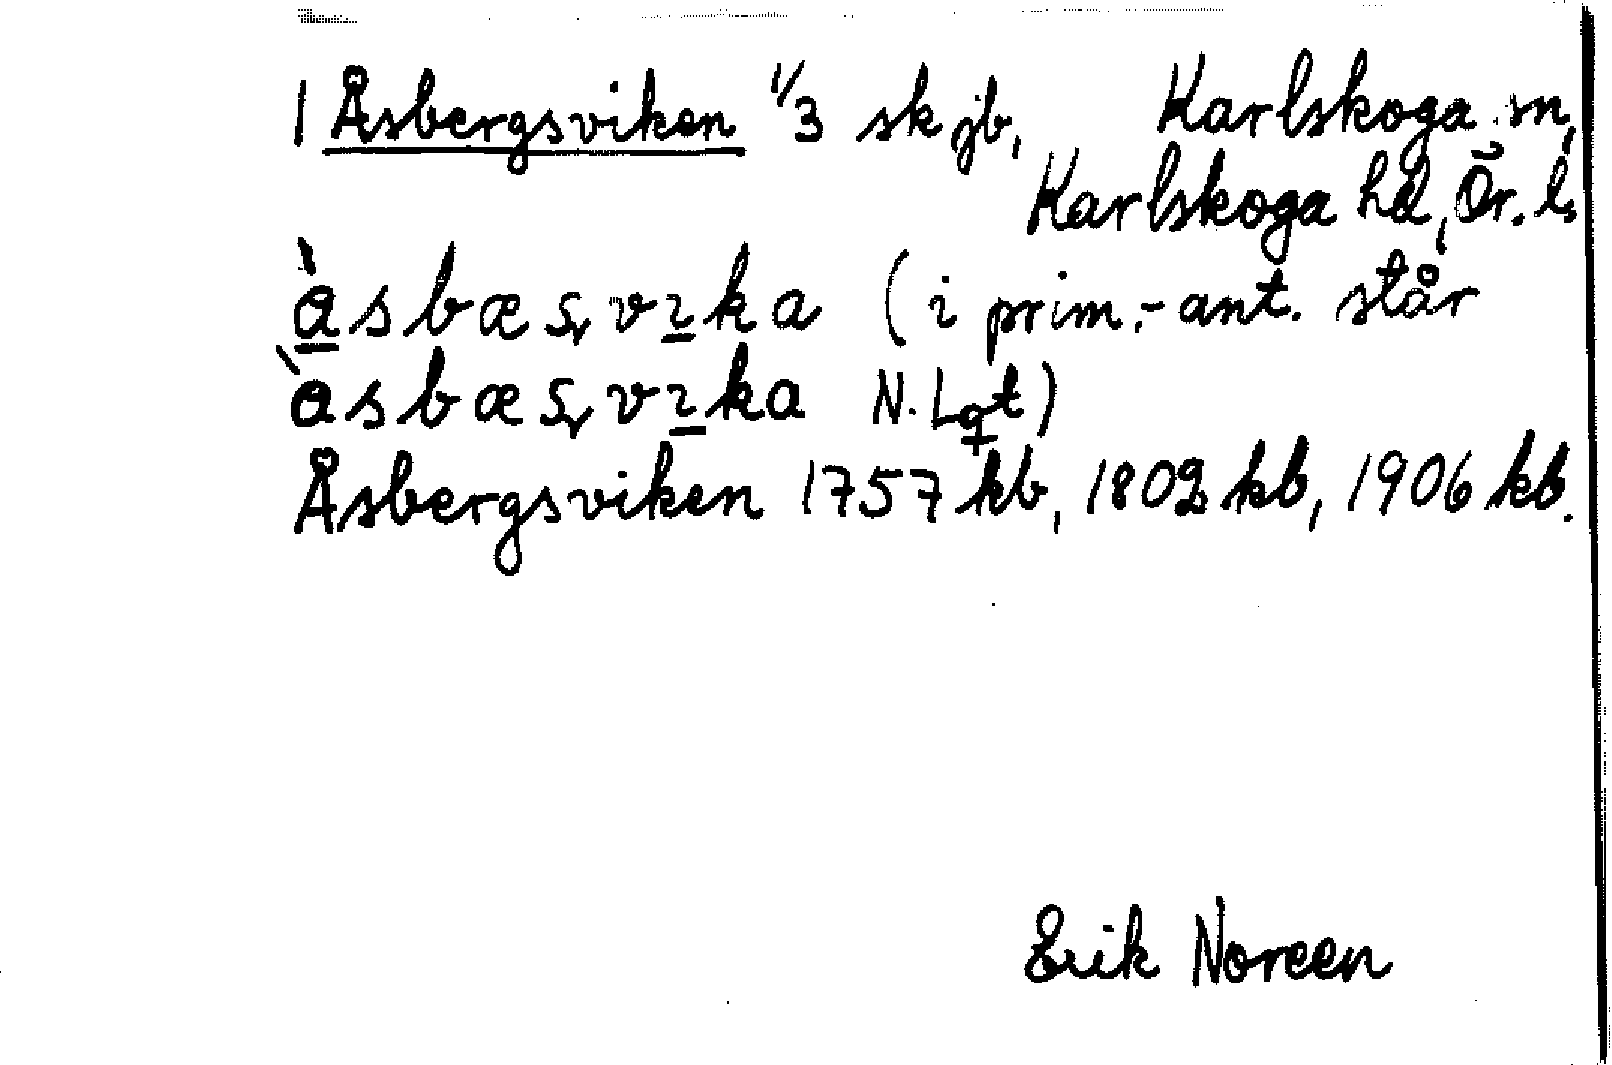 1 Åsbergsviken 1/3 sk jb, Karlskoga sn,
Karlskoga hd, Ör. l.
àsbæsvıka (i prim.-ant. står
àsbæsvıka N. Lqt)
Åsbergsviken 1757 kb, 1802 kb, 1906 kb.
Erik Noreen